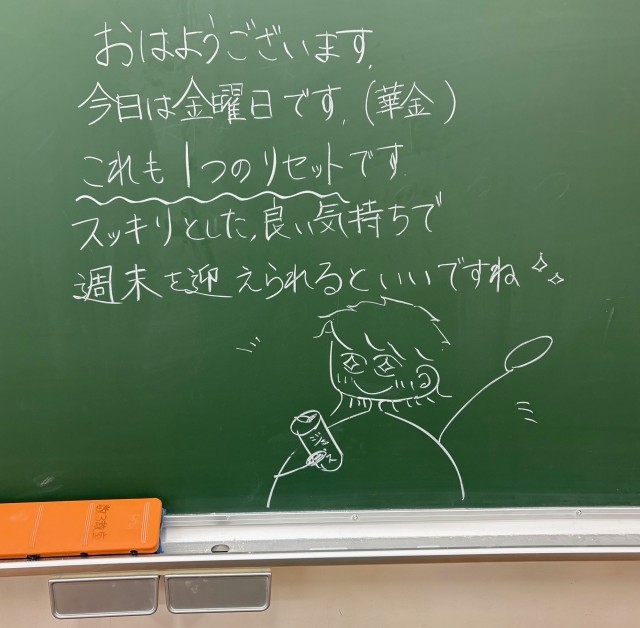 おはようございます。
今日は金曜日です。(華金)
これも1つのリセットです
スッキリとした、良い気持ちで
週末を迎えられるといいですね